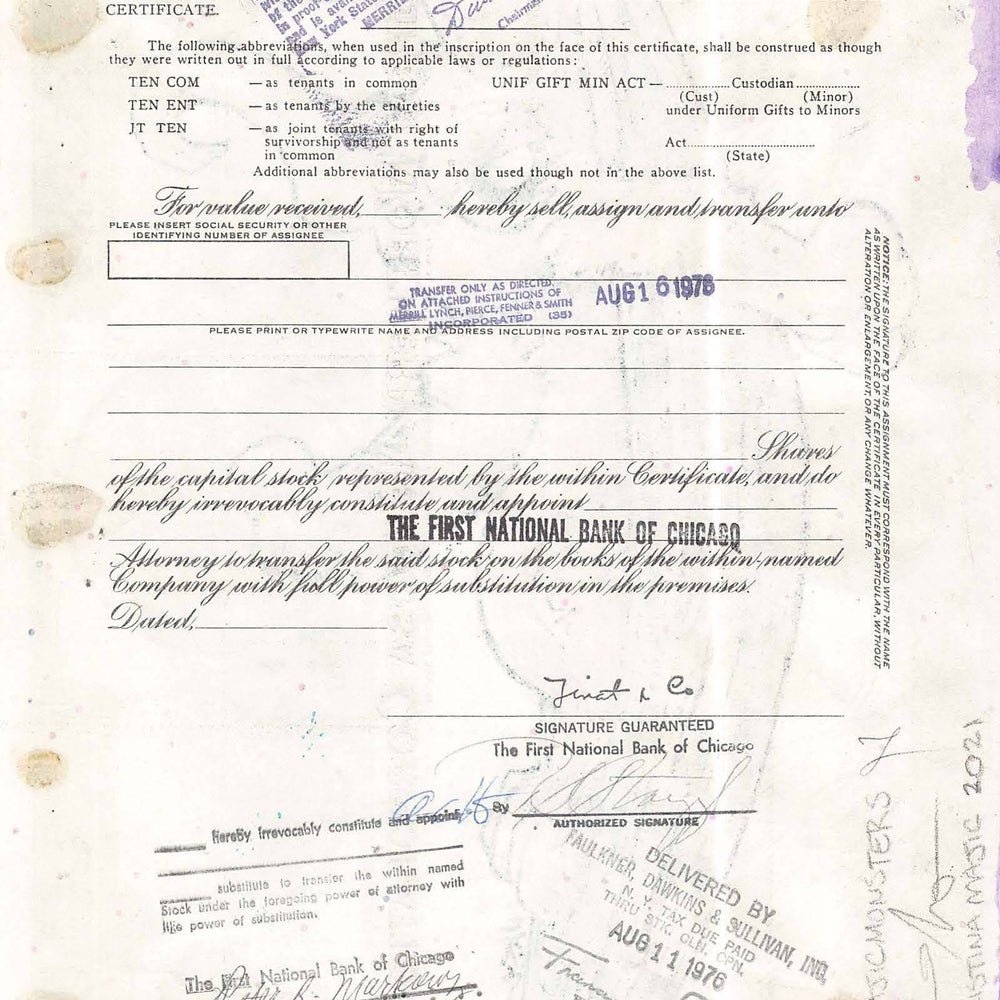 CERTIFICATE.
The following abbreviations, when used in the inscription on the face of this certificate, shall be construed as though
they were written out in full according to applicable laws or regulations:
TEN COM — as tenants in common UNIF GIFT MIN ACT — Custodian
(Cust) (Minor)
TEN ENT — as tenants by the entireties under Uniform Gifts to Minors
JT TEN — as joint tenants with right of
survivorship and not as tenants
in common
Act
(State)
Additional abbreviations may also be used though not in the above list.
For value received, hereby sell, assign and transfer unto
PLEASE INSERT SOCIAL SECURITY OR OTHER
IDENTIFYING NUMBER OF ASSIGNEE
TRANSFER ONLY AS DIRECTED
ON ATTACHED INSTRUCTIONS OF
MERRILL LYNCH, PIERCE, FENNER & SMITH
INCORPORATED (35)
AUG 16 1976
PLEASE PRINT OR TYPEWRITE NAME AND ADDRESS INCLUDING POSTAL ZIP CODE OF ASSIGNEE.
Shares
of the capital stock represented by the within Certificate, and do
hereby irrevocably constitute and appoint
THE FIRST NATIONAL BANK OF CHICAGO
Attorney to transfer the said stock on the books of the within-named
Company with full power of substitution in the premises.
Dated,
NOTICE: THE SIGNATURE TO THIS ASSIGNMENT MUST CORRESPOND WITH THE NAME
AS WRITTEN UPON THE FACE OF THE CERTIFICATE IN EVERY PARTICULAR, WITHOUT
ALTERATION OR ENLARGEMENT, OR ANY CHANGE WHATEVER.
& Co
SIGNATURE GUARANTEED
The First National Bank of Chicago
By
AUTHORIZED SIGNATURE
hereby irrevocably constitute and appoint
substitute to transfer the within named
Stock under the foregoing power of attorney with
like power of substitution.
The First National Bank of Chicago
DELIVERED BY
FAULKNER, DAWKINS & SULLIVAN, INC.
N. Y. TAX DUE PAID
THRU STK. CLN. CPN.
AUG 11 1976
MAJIC 2021